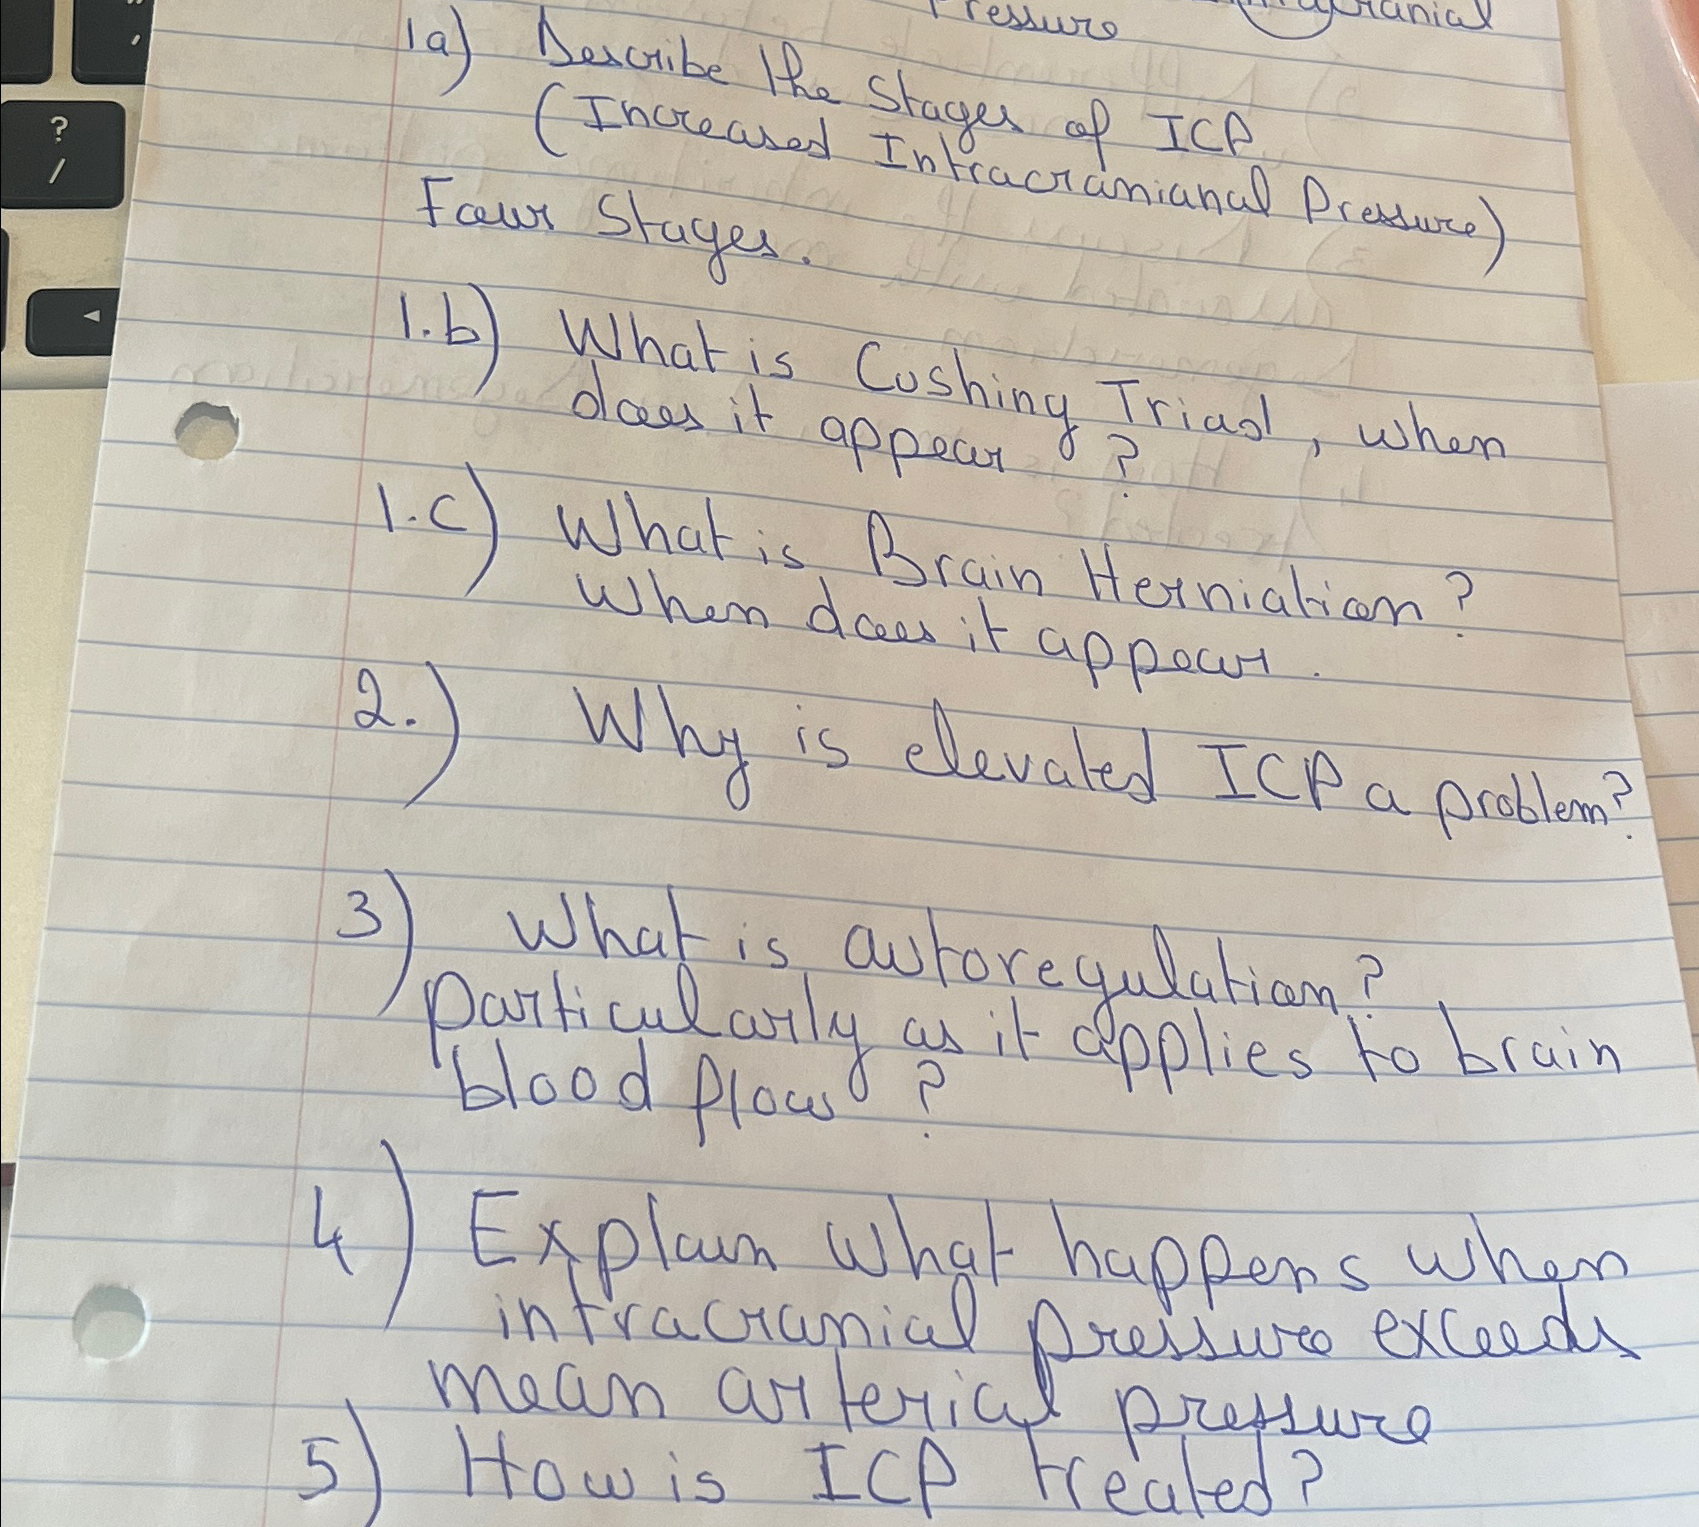 Pressure
1a) Describe the Stages of ICP
(Increased Intracranianal Pressure)
Four Stages.
1.b) What is Cushing Triad, when
does it appear?
1.c) What is Brain Herniation?
When does it appear.
2.) Why is elevated ICP a problem?
3) What is autoregulation?
particularly as it applies to brain
blood flow?
4) Explain what happens when
intracranial pressure exceeds
mean arterial pressure
5) How is ICP treated?
?
/